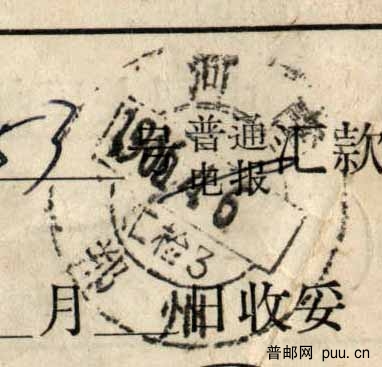 河
53 号 普通 汇款
电报
汇检3
郑
州
月 日收妥
普邮网 puu.cn